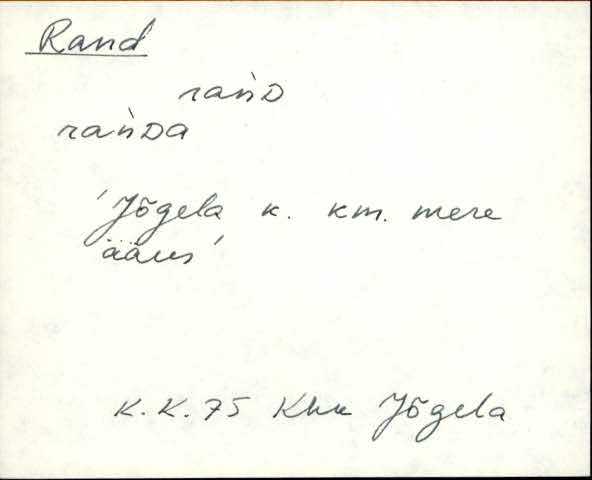 Rand
rań̀D
rań̀Da
'Jõgela k. km. mere
ääres'
K.K. 75 Khk Jõgela